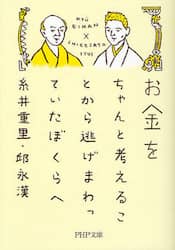 KYU EIKAN
×
SHIGESATO ITOI
お金を
ちゃんと考えるこ
とから逃げまわっ
ていたぼくらへ
糸井重里・邱永漢
PHP文庫